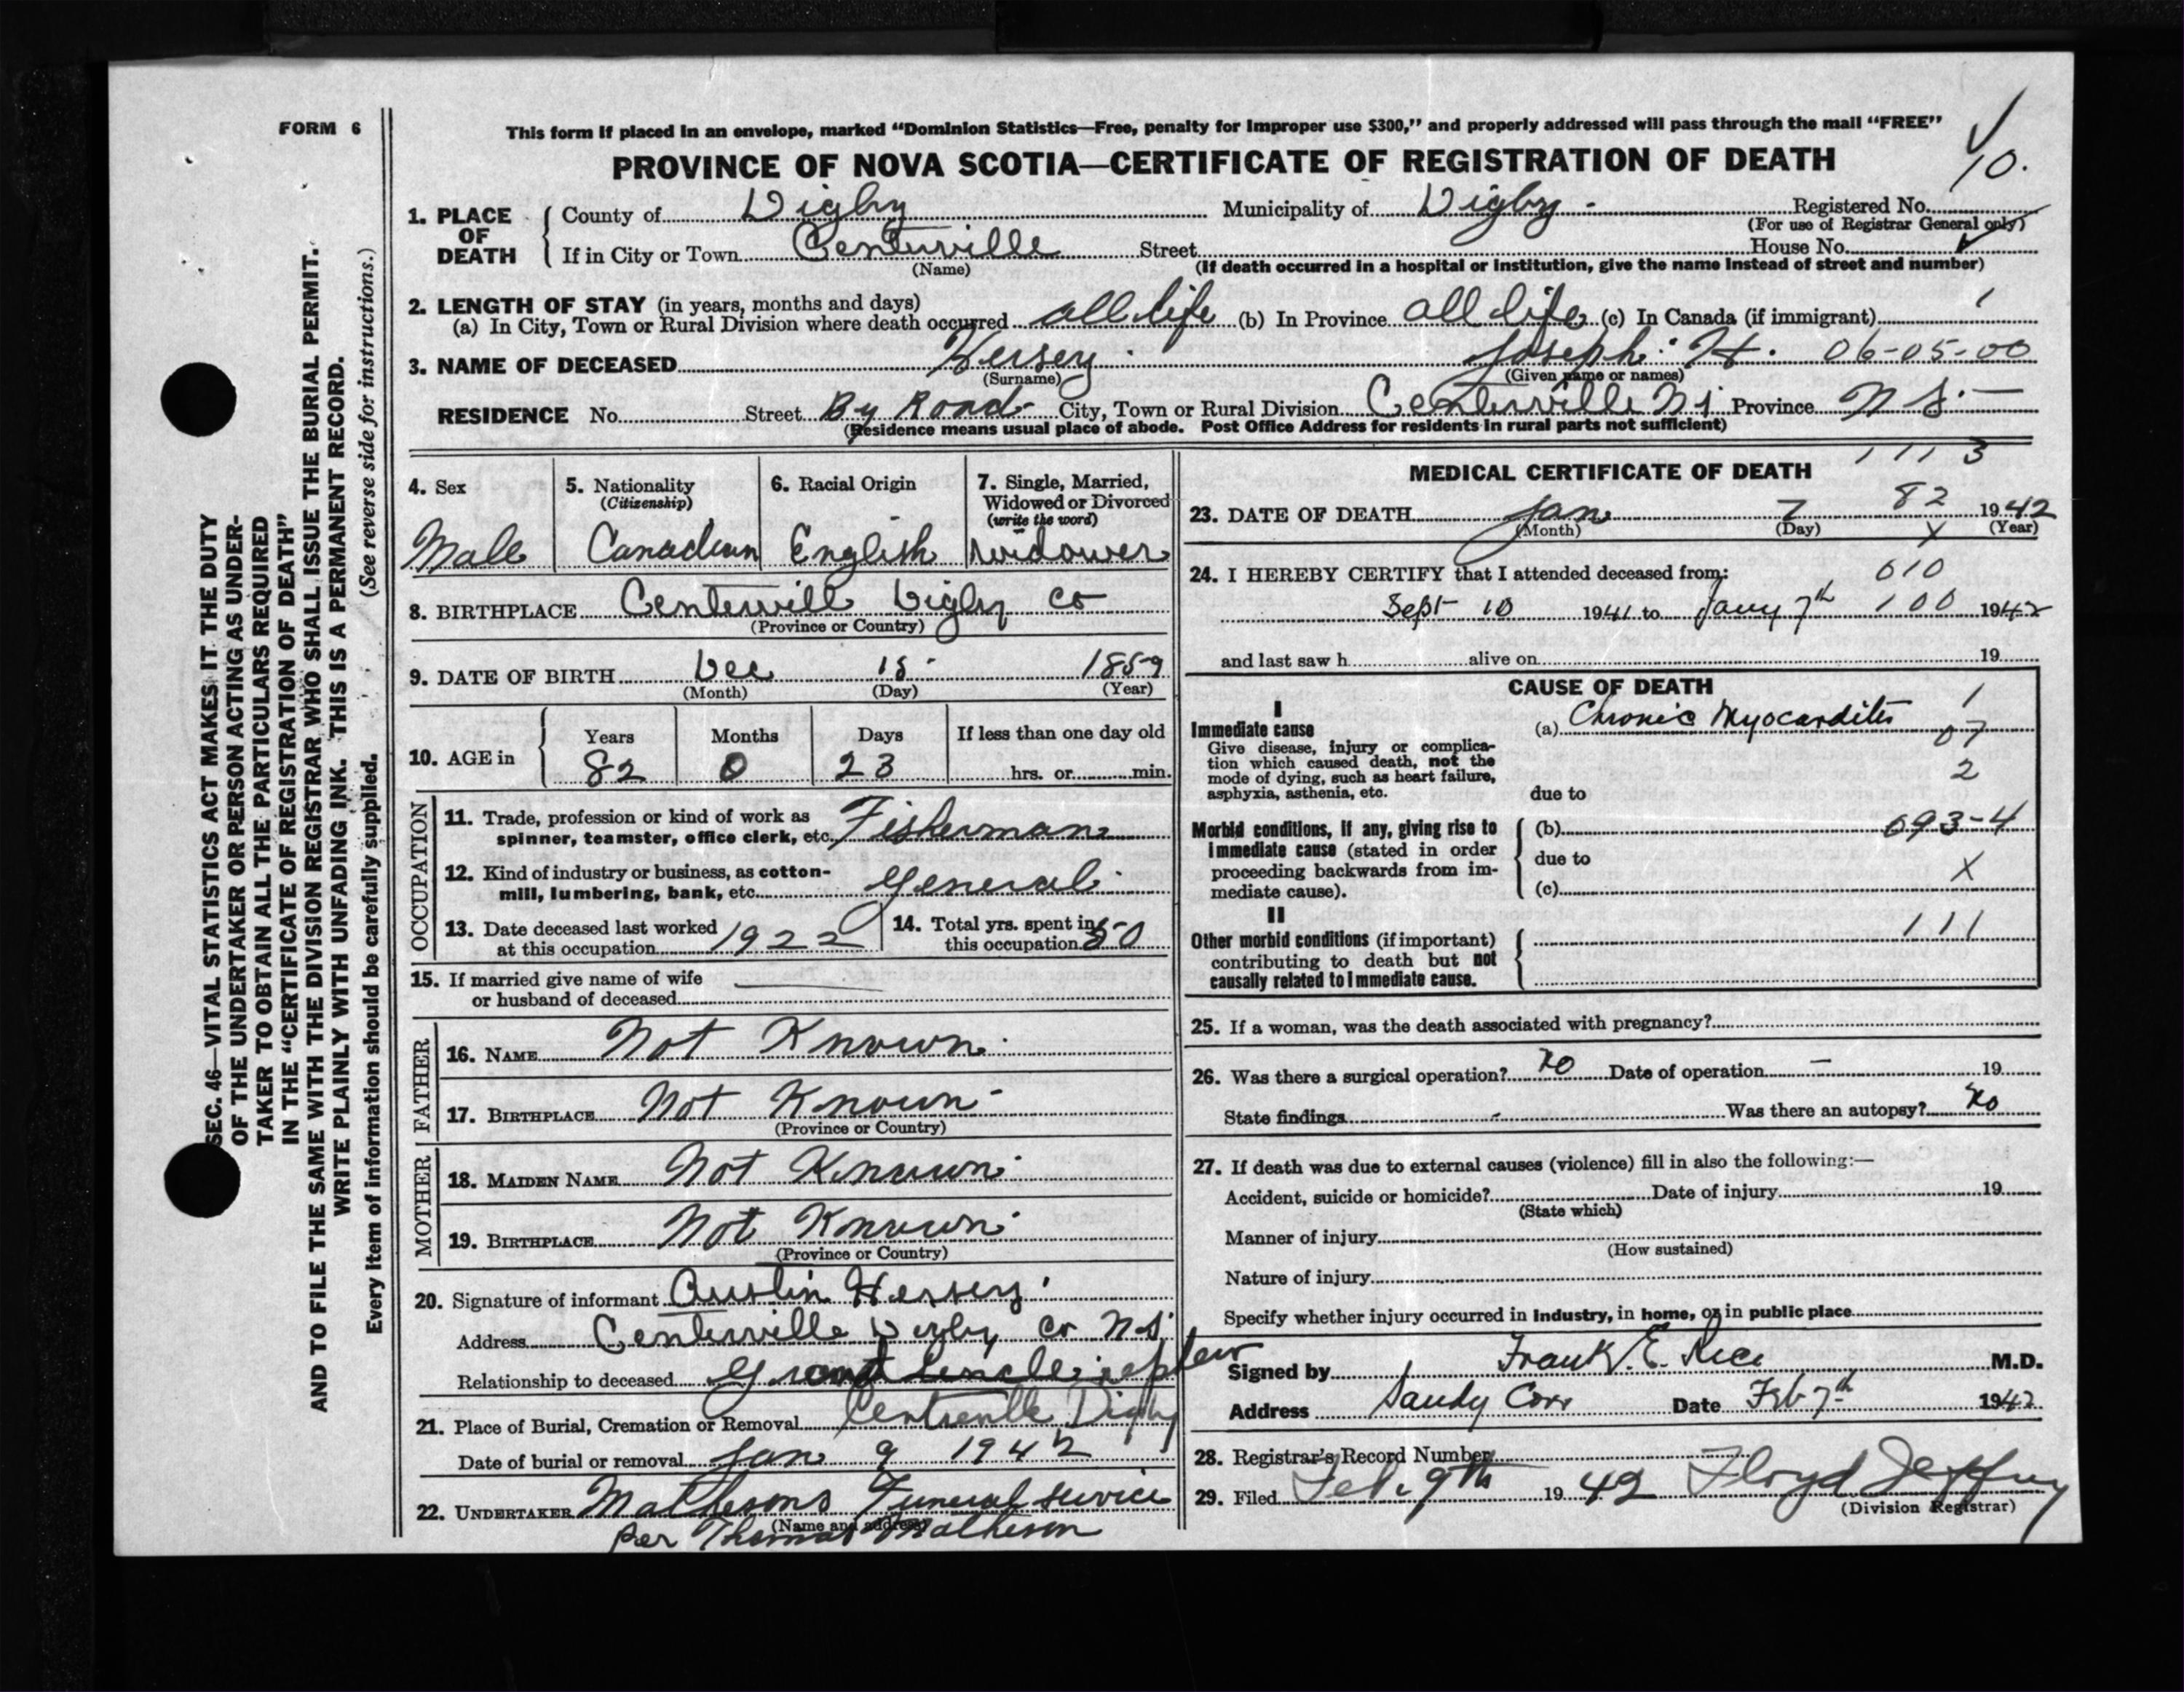 FORM 6
This form if placed in an envelope, marked "Dominion Statistics—Free, penalty for improper use $300," and properly addressed will pass through the mail "FREE"
PROVINCE OF NOVA SCOTIA—CERTIFICATE OF REGISTRATION OF DEATH
10.
1. PLACE OF DEATH
County of Digby Municipality of Digby - Registered No.
(For use of Registrar General only)
If in City or Town Centerville Street House No.
(Name)
(If death occurred in a hospital or institution, give the name instead of street and number)
2. LENGTH OF STAY (in years, months and days)
(a) In City, Town or Rural Division where death occurred all life (b) In Province all life (c) In Canada (if immigrant) 1
3. NAME OF DECEASED Hersey Joseph H. 06-05-00
(Surname) (Given name or names)
RESIDENCE No. Street By Road City, Town or Rural Division Centerville NS Province N S.
(Residence means usual place of abode. Post Office Address for residents in rural parts not sufficient)
4. Sex Male
5. Nationality (Citizenship) Canadian
6. Racial Origin English
7. Single, Married, Widowed or Divorced (write the word) widower
8. BIRTHPLACE Centervill Digby Co
(Province or Country)
9. DATE OF BIRTH Dec 15 1859
(Month) (Day) (Year)
10. AGE in
Years Months Days If less than one day old
82 0 23 hrs. or min.
OCCUPATION
11. Trade, profession or kind of work as
spinner, teamster, office clerk, etc. Fisherman
12. Kind of industry or business, as cotton-
mill, lumbering, bank, etc. General
13. Date deceased last worked
at this occupation 1922
14. Total yrs. spent in
this occupation 50
15. If married give name of wife
or husband of deceased
FATHER
16. NAME Not Known
17. BIRTHPLACE Not Known
(Province or Country)
MOTHER
18. MAIDEN NAME Not Known
19. BIRTHPLACE Not Known
(Province or Country)
20. Signature of informant Austin Hersey
Address Centerville Digby Co N.S.
Relationship to deceased Grand uncle nephew
21. Place of Burial, Cremation or Removal Centreville Digby
Date of burial or removal Jan 9 1942
22. UNDERTAKER Mathesons Funeral service
(Name and address)
per Thomas Matheson
MEDICAL CERTIFICATE OF DEATH 111 3
82
23. DATE OF DEATH Jan 7 1942
(Month) (Day) X (Year)
24. I HEREBY CERTIFY that I attended deceased from: 010
Sept 10 1941 to Jany 7th 100 1942
and last saw h alive on 19
CAUSE OF DEATH
I
Immediate cause (a) Chronic Myocarditis 1
Give disease, injury or complica-
tion which caused death, not the
mode of dying, such as heart failure,
asphyxia, asthenia, etc.
07
2
due to
Morbid conditions, if any, giving rise to
immediate cause (stated in order
proceeding backwards from im-
mediate cause).
(b) 093-4
due to
X
(c)
II
Other morbid conditions (if important)
contributing to death but not
causally related to immediate cause.
111
25. If a woman, was the death associated with pregnancy?
26. Was there a surgical operation? No Date of operation — 19
State findings - Was there an autopsy? No
27. If death was due to external causes (violence) fill in also the following:—
Accident, suicide or homicide? Date of injury 19
(State which)
Manner of injury
(How sustained)
Nature of injury
Specify whether injury occurred in industry, in home, or in public place
Signed by Frank E. Rice M.D.
Address Sandy Cove Date Feb 7th 1942
28. Registrar's Record Number
29. Filed Feb. 9th 1942 Floyd Jeffrey
(Division Registrar)
SEC. 46—VITAL STATISTICS ACT MAKES IT THE DUTY
OF THE UNDERTAKER OR PERSON ACTING AS UNDER-
TAKER TO OBTAIN ALL THE PARTICULARS REQUIRED
IN THE "CERTIFICATE OF REGISTRATION OF DEATH"
AND TO FILE THE SAME WITH THE DIVISION REGISTRAR WHO SHALL ISSUE THE BURIAL PERMIT.
WRITE PLAINLY WITH UNFADING INK. THIS IS A PERMANENT RECORD.
Every item of information should be carefully supplied. (See reverse side for instructions.)